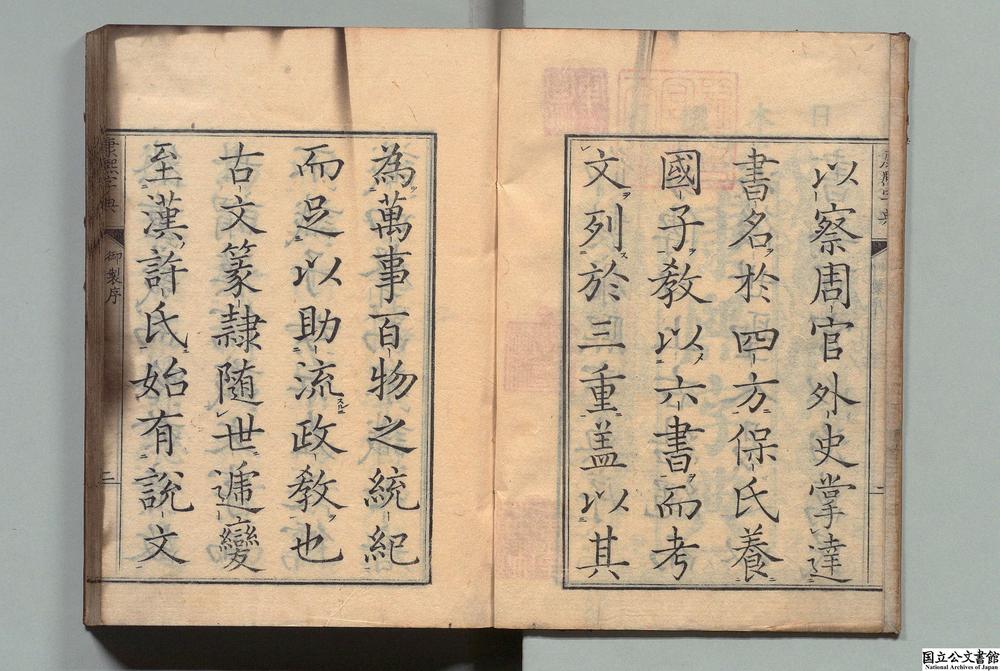 以察周官外史掌達
書名於四方保氏養
國子教以六書而考
文列於三重盖以其
為萬事百物之統紀
而足以助流政教也
古文篆隷随世遞變
至漢許氏始有說文
康熙字典
御製序
二
国立公文書館
National Archives of Japan